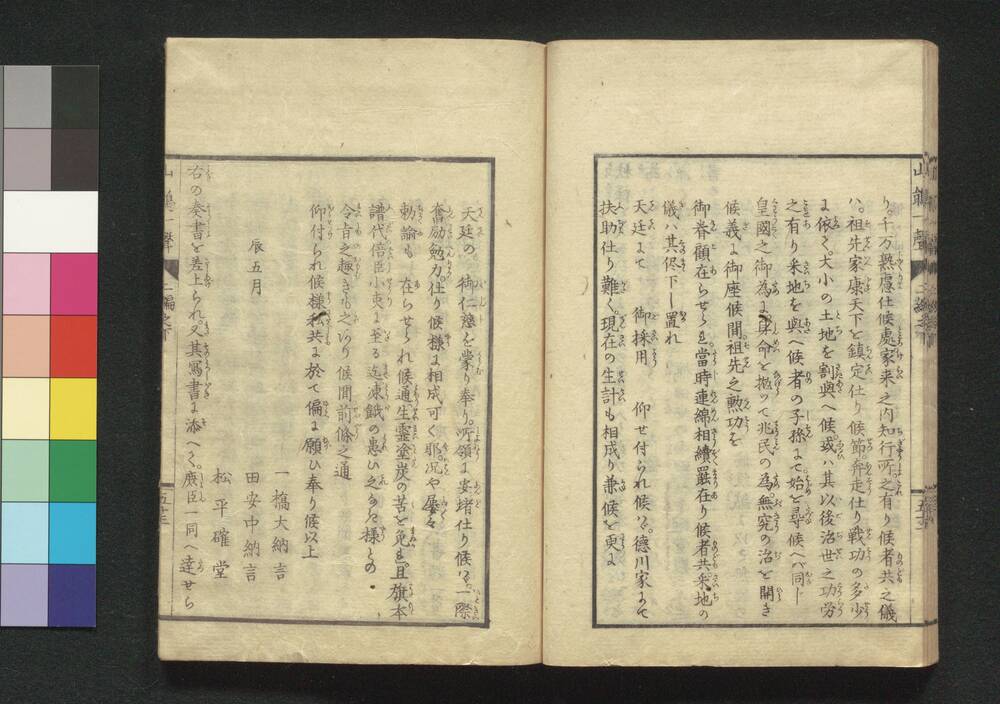 り。千万熟慮仕候處家来之内知行所之有り候者共之儀
ハ。祖先家康天下を鎮定仕り候節。奔走仕り戦功の多少
に依て。大小の土地を割與へ候。或ハ其以後治世之功労
之有り采地を與へ候者の子孫にて。始を尋候へバ同じ
皇國之御為に身命を抛って兆民の為。無究の治を開き
候義に御座候間。祖先之勲功を
御眷顧在らせられ。當時連綿相續罷在り候者共。采地の
儀ハ其侭下し置れ
天廷にて 御採用 仰せ付られ候はゞ。德川家にて
扶助仕り難く。現在の生計も相成り兼候を更に
天廷の 御仁慈を蒙り奉り。所領に安堵仕り候はゞ。一際
奮励勉力仕り候様に相成可く耶。况や屡々
勅諭も 在らせられ候通。生靈塗炭の苦を免も。且旗本
譜代倍臣小吏に至る迄凍餓の患ひ之なき様との
令旨之趣きも之あり候間前條之通
仰付られ候様私共に於て偏に願ひ奉り候以上
辰五月
一橋大納言
田安中納言
松平確堂
右の奏書を差上られ。又其寫書に添へて。麾臣一同へ達せら
山鵑一聲 二編之下 五十三